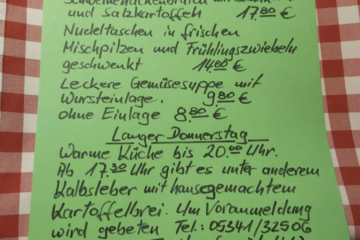 Schweinenackenbraten mit
und Salzkartoffeln 17.80 €
Nudeltaschen in frischen
Mischpilzen und Frühlingszwiebeln
geschwenkt 14.80 €
Leckere Gemüsesuppe mit
Wursteinlage. 9.80 €
ohne Einlage 8.80 €
Langer Donnerstag
Warme Küche bis 20.00 Uhr.
Ab 17.30 Uhr gibt es unter anderem
Kalbsleber mit hausgemachtem
Kartoffelbrei. Um Voranmeldung
wird gebeten Tel.: 05341/32506